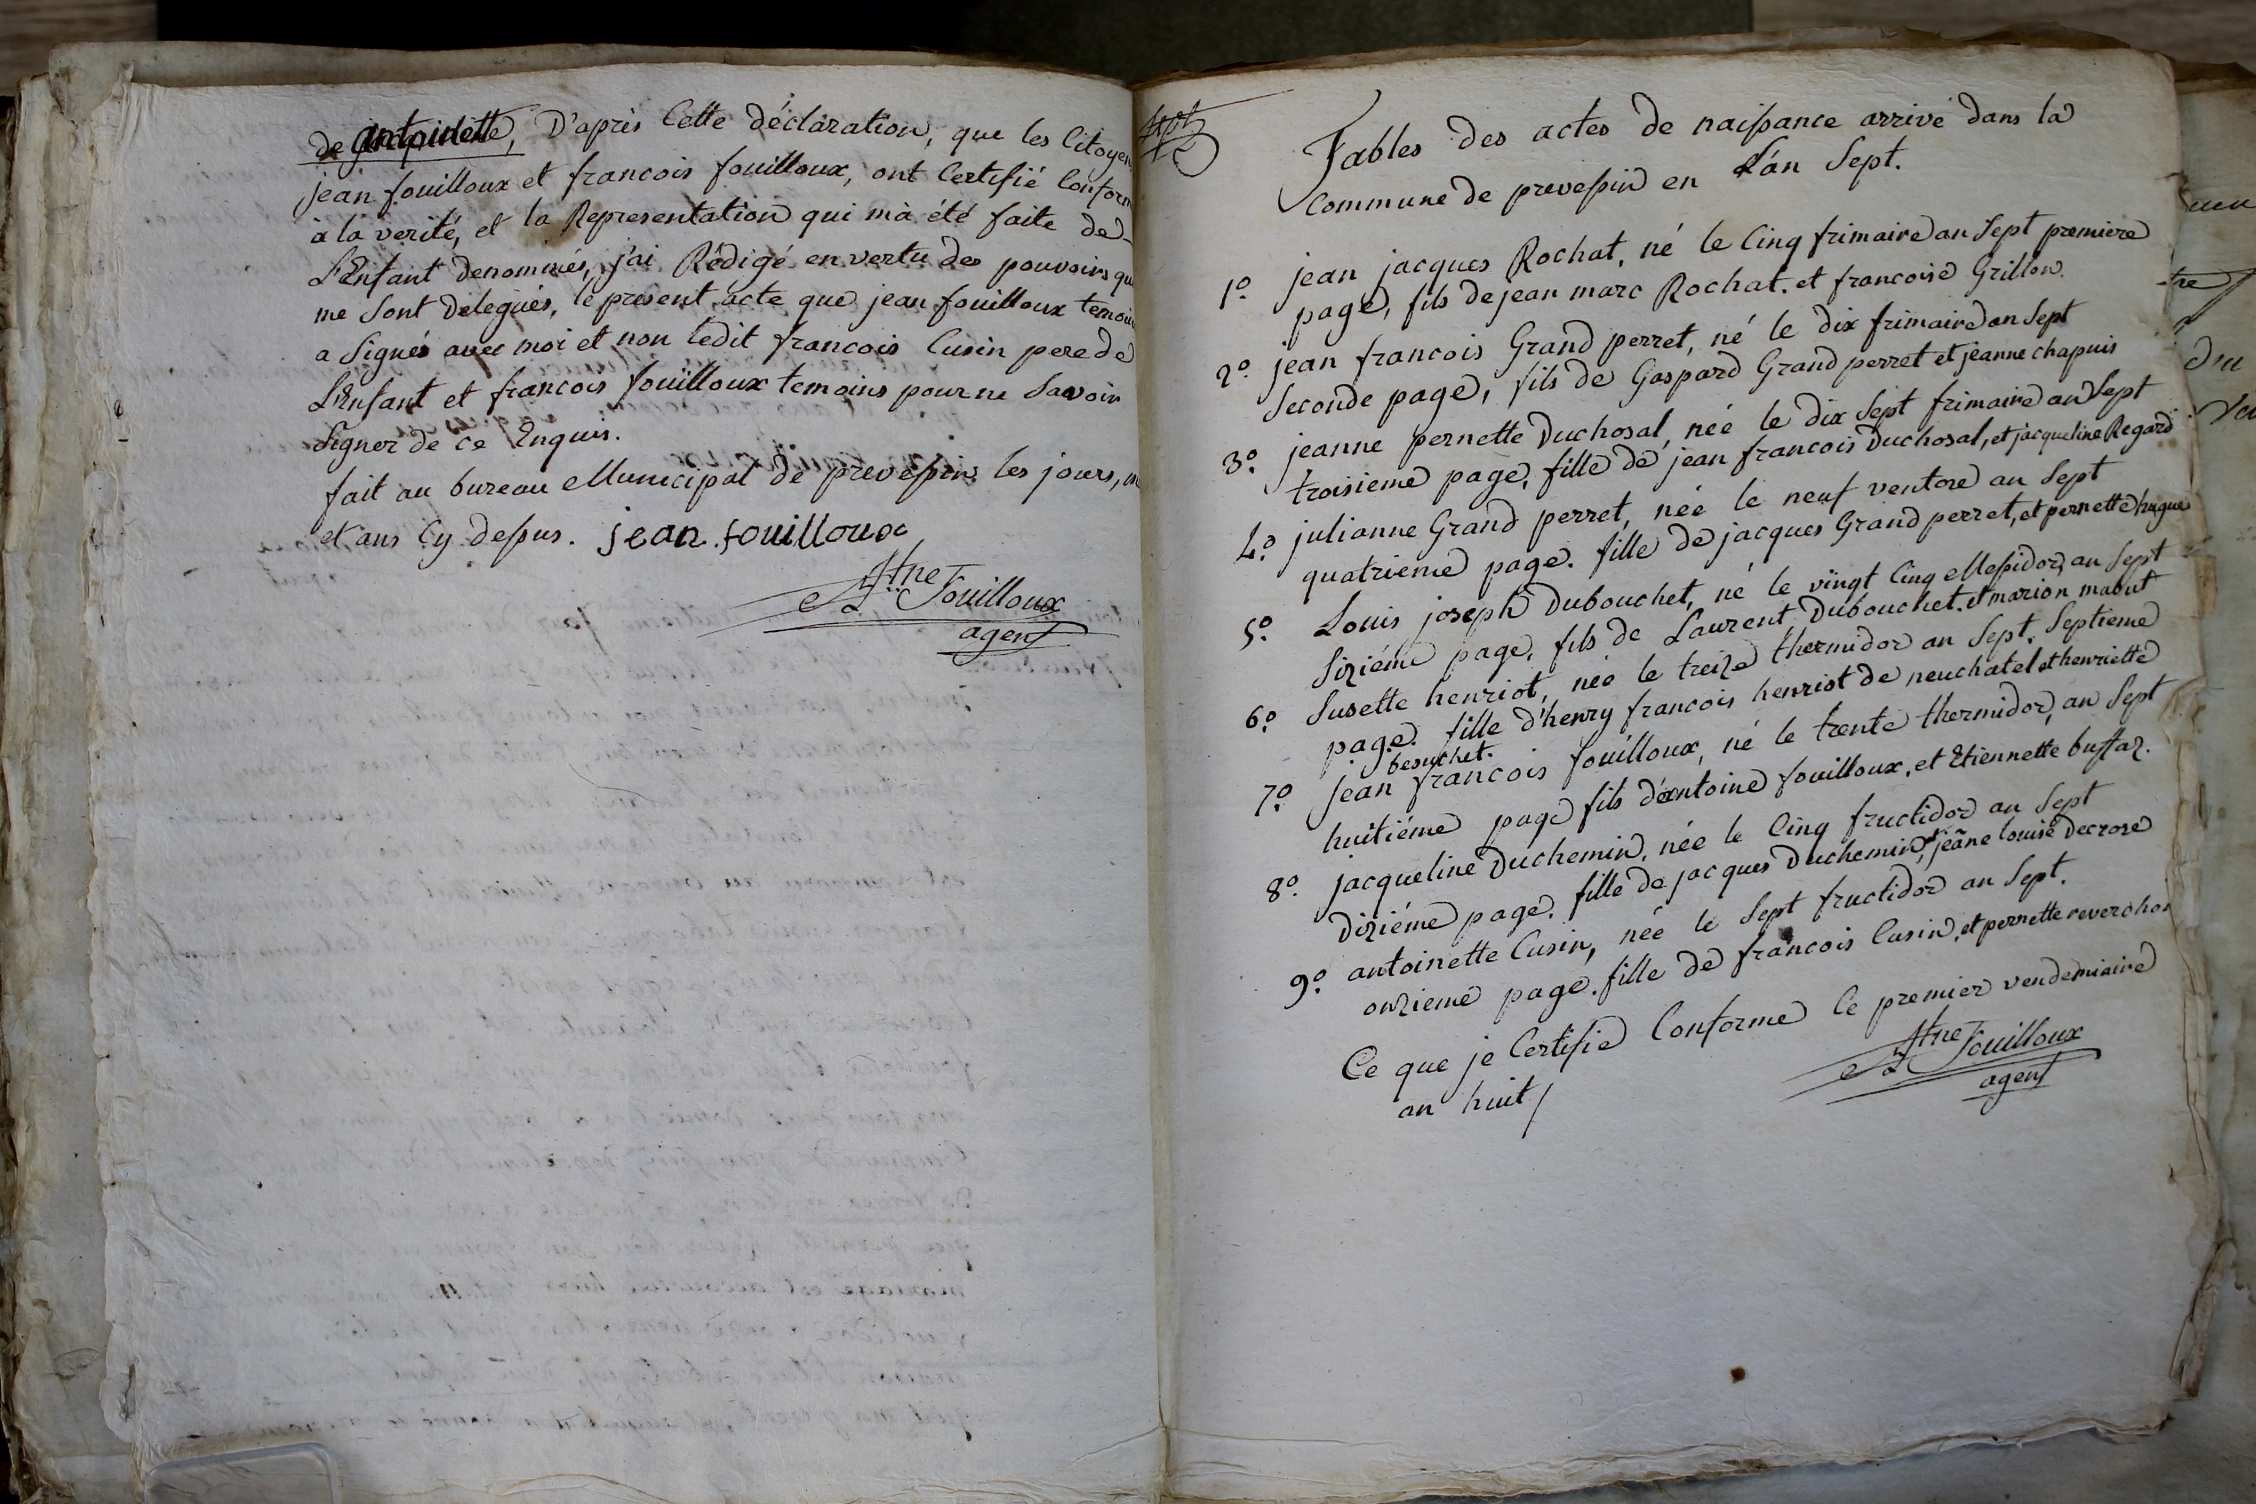 de antoinette, D'après Cette déclaration, que les Citoyen
jean fouilloux et francois fouilloux, ont Certifié Conform
à la verité, et la Representation qui m'a été faite de
L'Enfant denommés, j'ai Rédigé en vertu des pouvoirs qu
me sont Delegués, le present acte que jean fouilloux temoin
a signés avec moi et non ledit francois Cusin pere de
L'Enfant et francois fouilloux temoins pour ne Savoir
signer de ce Enquis.
fait au bureau Municipal de prevessin les jours, m
et ans Cy dessus. jean fouilloux
Atne Fouilloux
agent
Tables des actes de naissance arrivé dans la
Commune de prevessin en L'an Sept.
1º. jean jacques Rochat, né le Cinq frimaire an Sept premiere
page, fils de jean marc Rochat. et francoise Grillon.
2º. jean francois Grand perret, né le dix frimaire an Sept
Seconde page, fils de Gaspard Grand perret et jeanne chapuis
3º. jeanne pernette Duchosal, née le dix Sept frimaire an Sept
troisieme page, fille de jean francois Duchosal, et jacqueline Regard
4º. julianne Grand perret, née le neuf ventose an Sept
quatrieme page. fille de jacques Grand perret, et pernette hugue
5º. Louis joseph Dubouchet, né le vingt Cinq Messidor, an Sept
Sixiéme page, fils de Laurent Dubouchet. et marion mabut
6º. Susette henriot, née le treize thermidor an Sept. Septieme
page. fille d'henry francois henriot de neuchatel et henriette
besuchet.
7º. jean francois fouilloux, né le trente thermidor, an Sept
huitiéme page fils d'antoine fouilloux, et Etiennette buffaz.
8º. jacqueline Duchemin, née le Cinq fructidor an Sept
Dixiéme page. fille de jacques Duchemin, et jeãne louise Decroze
9º. antoinette Cusin, née le Sept fructidor an Sept.
onzieme page. fille de francois Cusin, et pernette reverchon
Ce que je Certifie Conforme le premier vendemiaire
an huit /
Atne Fouilloux
agent